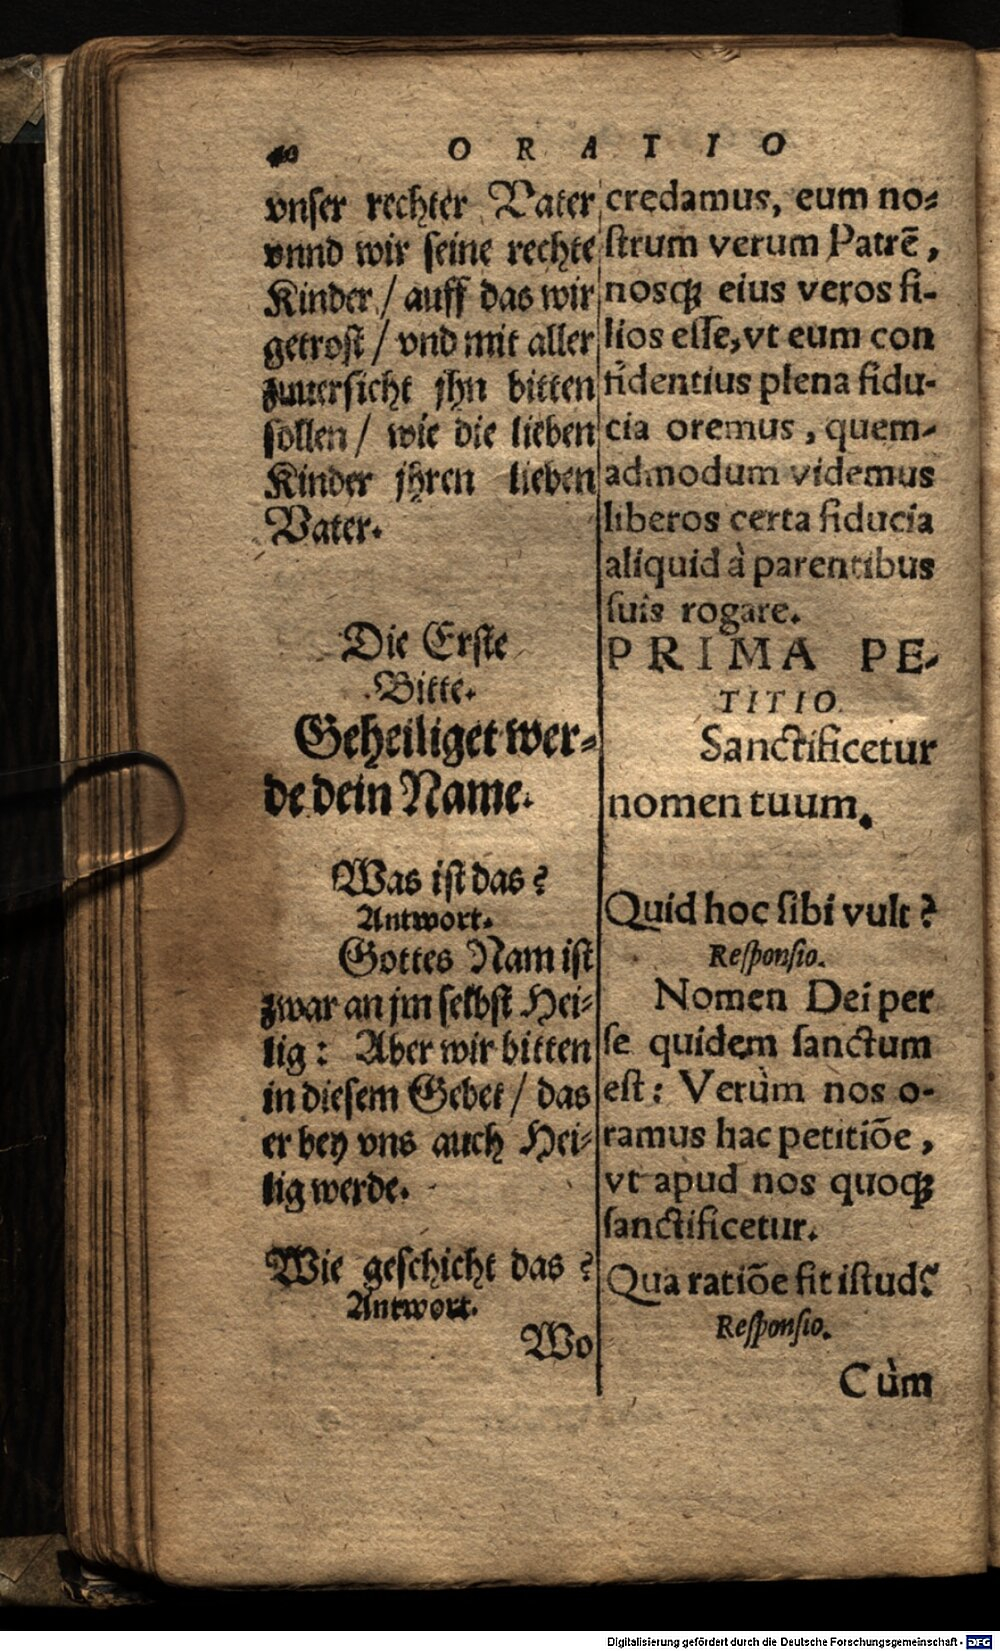 40 ORATIO
vnser rechter Vater
vnnd wir seine rechte
Kinder / auff das wir
getrost / vnd mit aller
zuuersicht jhn bitten
sollen / wie die lieben
Kinder jhren lieben
Vater.
Die Erste
Bitte.
Geheiliget wer⸗
de dein Name.
Was ist das?
Antwort.
Gottes Nam ist
zwar an jm selbst Hei⸗
lig: Aber wir bitten
in diesem Gebet / das
er bey vns auch Hei⸗
lig werde.
Wie geschicht das?
Antwort.
Wo
credamus, eum no-
ſtrum verum Patrē,
nosq́ꝫ eius veros fi-
lios eſſe, vt eum con
fidentius plena fidu-
cia oremus, quem-
admodum videmus
liberos certa fiducia
aliquid à parentibus
ſuis rogare.
PRIMA PE-
TITIO.
Sanctificetur
nomen tuum.
Quid hoc ſibi vult?
Reſponſio.
Nomen Dei per
ſe quidem ſanctum
eſt: Verùm nos o-
ramus hac petitiōe,
vt apud nos quoqꝫ
ſanctificetur.
Qua ratiōe fit iſtud?
Reſponſio.
Cùm
Digitalisierung gefördert durch die Deutsche Forschungsgemeinschaft - DFG